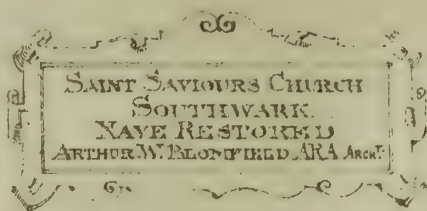 SAINT SAVIOURS CHURCH
SOUTHWARK.
NAVE RESTORED
ARTHUR.W.BLOMFIELD.ARA ARCHT.